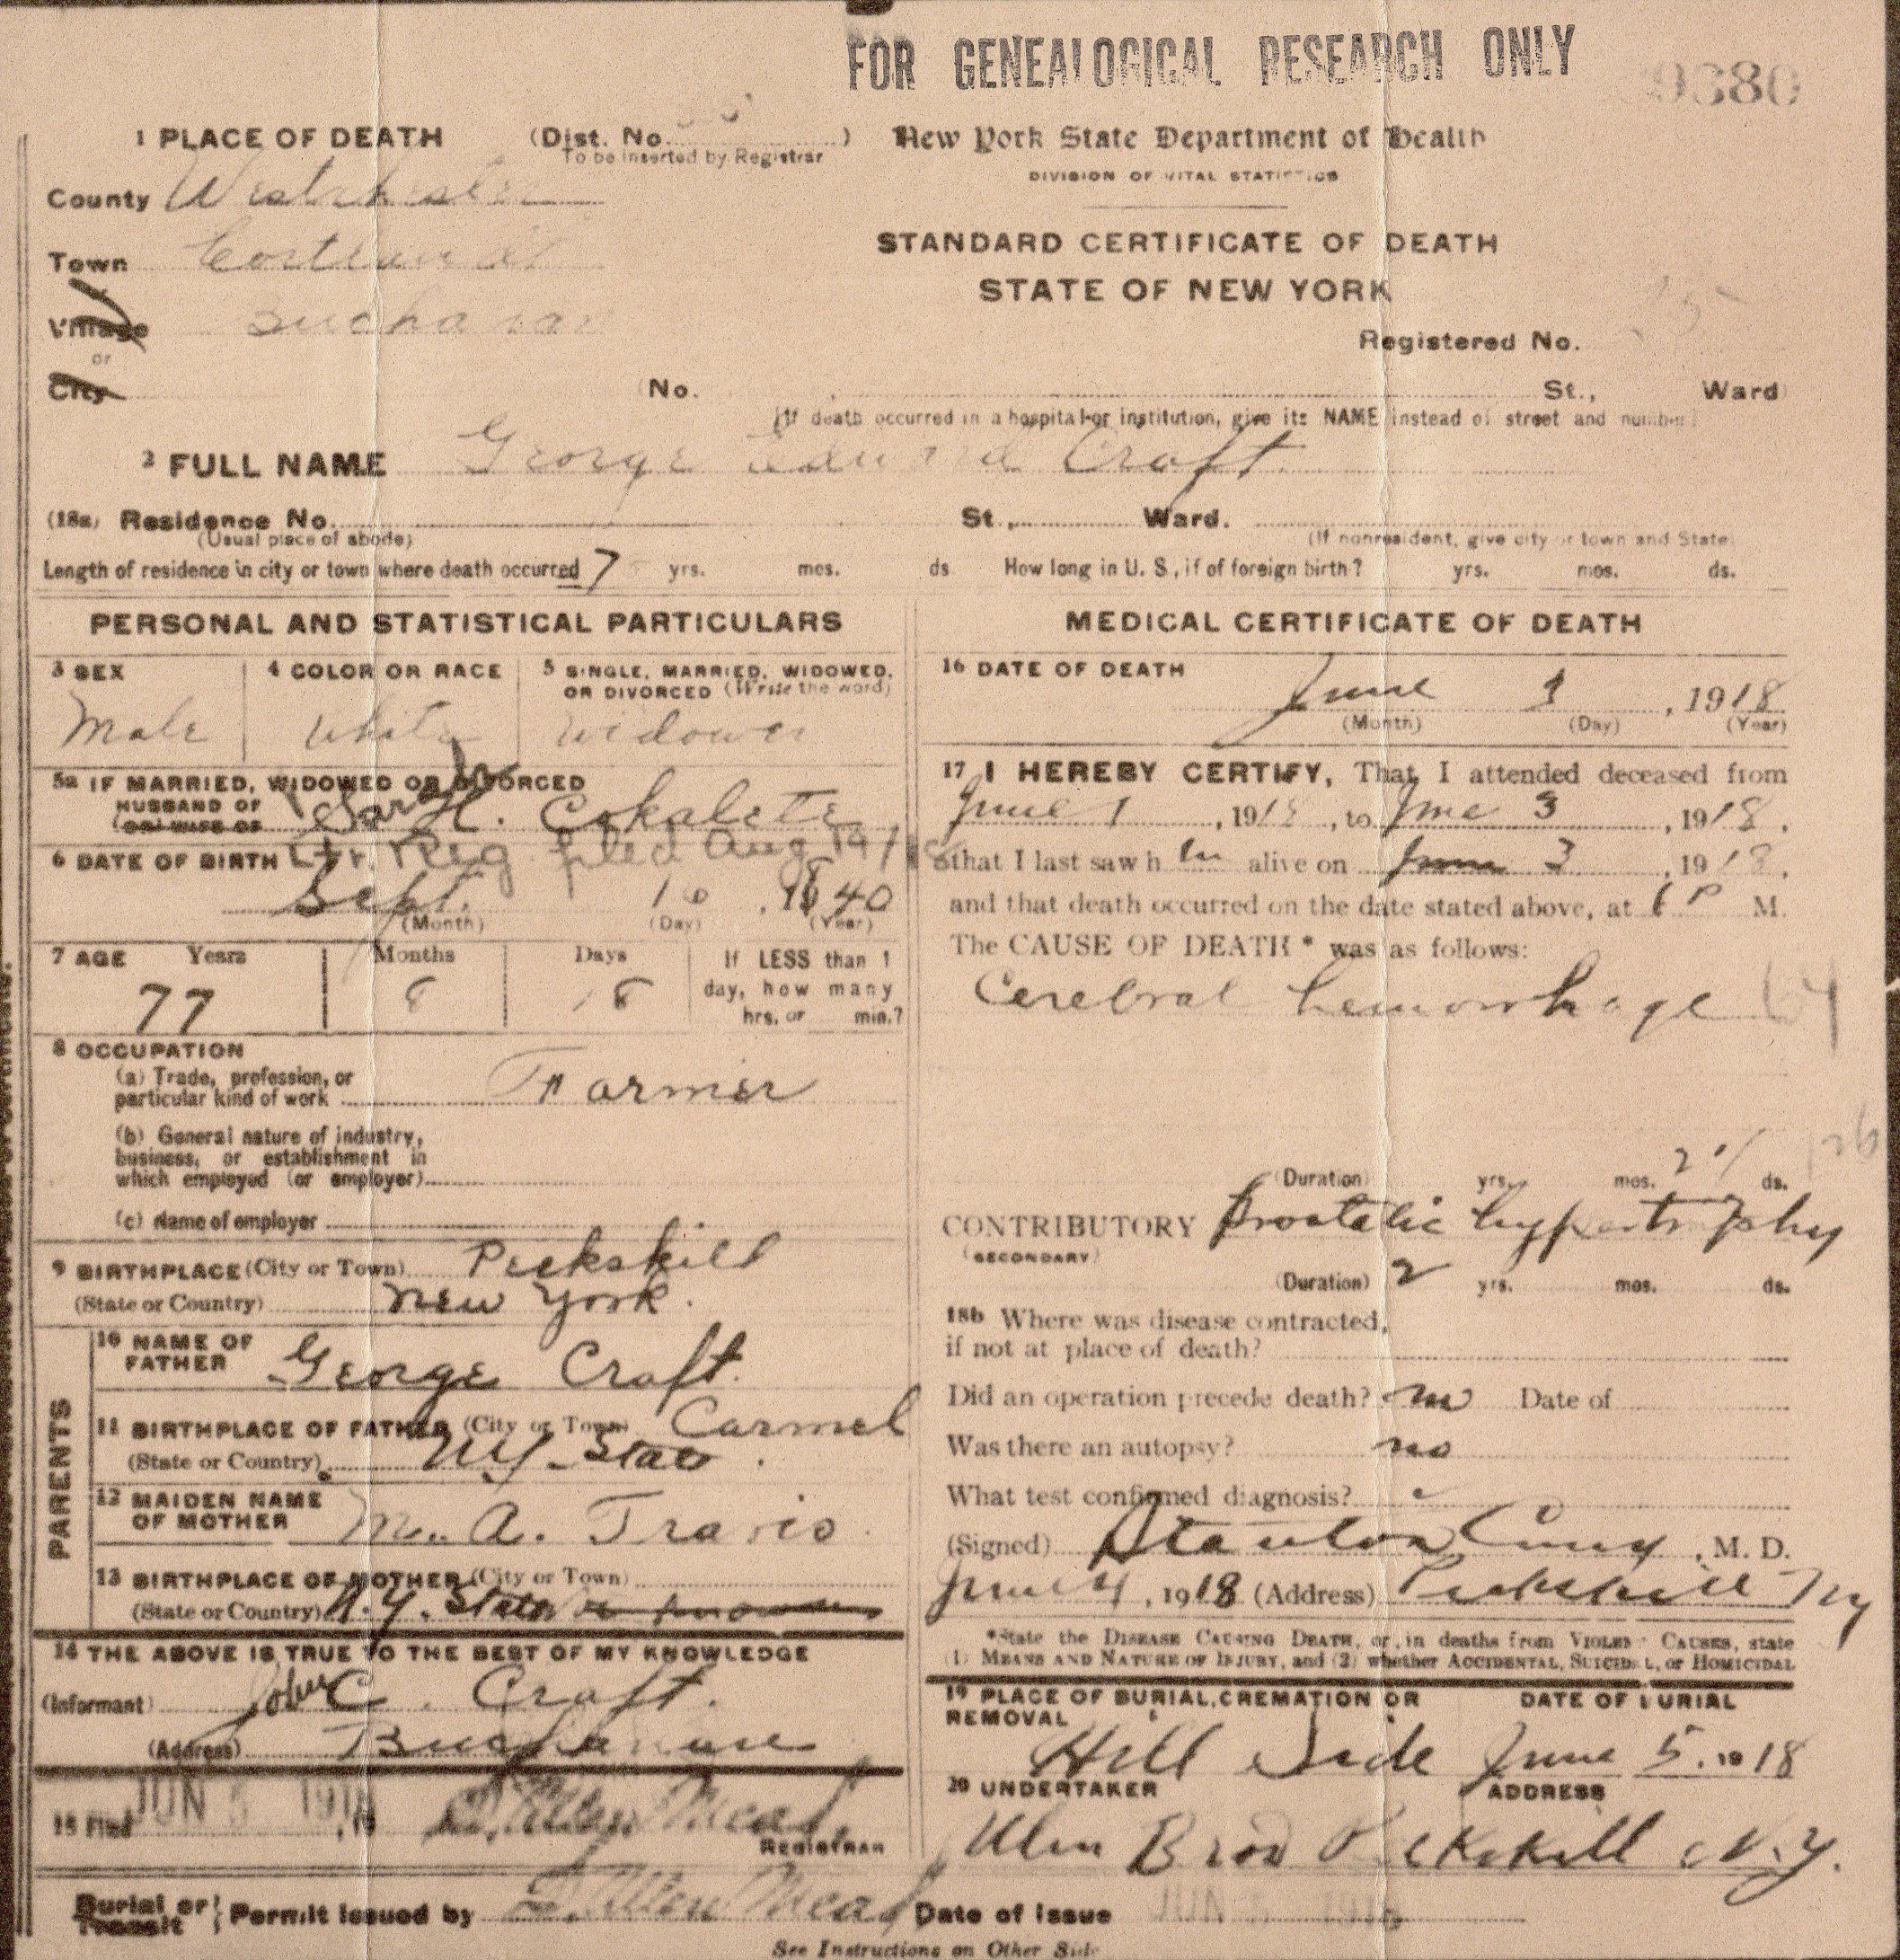 FOR GENEALOGICAL RESEARCH ONLY
9680
1 PLACE OF DEATH (Dist. No. )
To be inserted by Registrar
New York State Department of Health
DIVISION OF VITAL STATISTICS
County Westchester
STANDARD CERTIFICATE OF DEATH
Town Cortlandt
STATE OF NEW YORK
Village Buchanan
or
Registered No.
City
No. St., Ward
(If death occurred in a hospital or institution, give its NAME instead of street and number)
2 FULL NAME George Edward Craft
(18a) Residence No. St., Ward.
(Usual place of abode) (If nonresident, give city or town and State)
Length of residence in city or town where death occurred 7 yrs. mos. ds. How long in U. S., if of foreign birth? yrs. mos. ds.
PERSONAL AND STATISTICAL PARTICULARS
3 SEX
Male
4 COLOR OR RACE
White
5 SINGLE, MARRIED, WIDOWED,
OR DIVORCED (Write the word)
Widower
5a IF MARRIED, WIDOWED OR DIVORCED
HUSBAND OF
(OR) WIFE OF
Sarah H.
6 DATE OF BIRTH
Ltr. Reg filed Aug 19/18
Sept. 16, 1840
(Month) (Day) (Year)
7 AGE Years Months Days
77 8 18
If LESS than 1
day, how many
hrs. or min.?
8 OCCUPATION
(a) Trade, profession, or
particular kind of work Farmer
(b) General nature of industry,
business, or establishment in
which employed (or employer)
(c) Name of employer
9 BIRTHPLACE (City or Town) Peekskill
(State or Country) New York.
PARENTS
10 NAME OF
FATHER George Craft.
11 BIRTHPLACE OF FATHER (City or Town) Carmel
(State or Country) NY State.
12 MAIDEN NAME
OF MOTHER M. A. Travis
13 BIRTHPLACE OF MOTHER (City or Town)
(State or Country) N.Y. State
14 THE ABOVE IS TRUE TO THE BEST OF MY KNOWLEDGE
(Informant) John C. Craft.
(Address) Buchanan
15 Filed JUN 5 1918, 19
REGISTRAR
MEDICAL CERTIFICATE OF DEATH
16 DATE OF DEATH
June 3, 1918
(Month) (Day) (Year)
17 I HEREBY CERTIFY, That I attended deceased from
June 1, 1918, to June 3, 1918.
that I last saw h im alive on June 3 1918.
and that death occurred on the date stated above, at 6 P M.
The CAUSE OF DEATH * was as follows:
Cerebral hemorrhage 64
(Duration) yrs. mos. 2 ds.
CONTRIBUTORY Prostatic hypertrophy
(SECONDARY)
(Duration) 2 yrs. mos. ds.
18b Where was disease contracted,
if not at place of death?
Did an operation precede death? no Date of
Was there an autopsy? no
What test confirmed diagnosis?
(Signed) Stanton, M. D.
June 4, 1918 (Address) Peekskill NY
*State the DISEASE CAUSING DEATH, or, in deaths from VIOLENT CAUSES, state
(1) MEANS AND NATURE OF INJURY, and (2) whether ACCIDENTAL, SUICIDAL, or HOMICIDAL
19 PLACE OF BURIAL, CREMATION OR
REMOVAL
DATE OF BURIAL
Hill Side June 5. 1918
20 UNDERTAKER ADDRESS
Bros Peekskill N.Y.
Burial or
Transit
Permit Issued by Allen Mead Date of Issue JUN 5 1918
See Instructions on Other Side